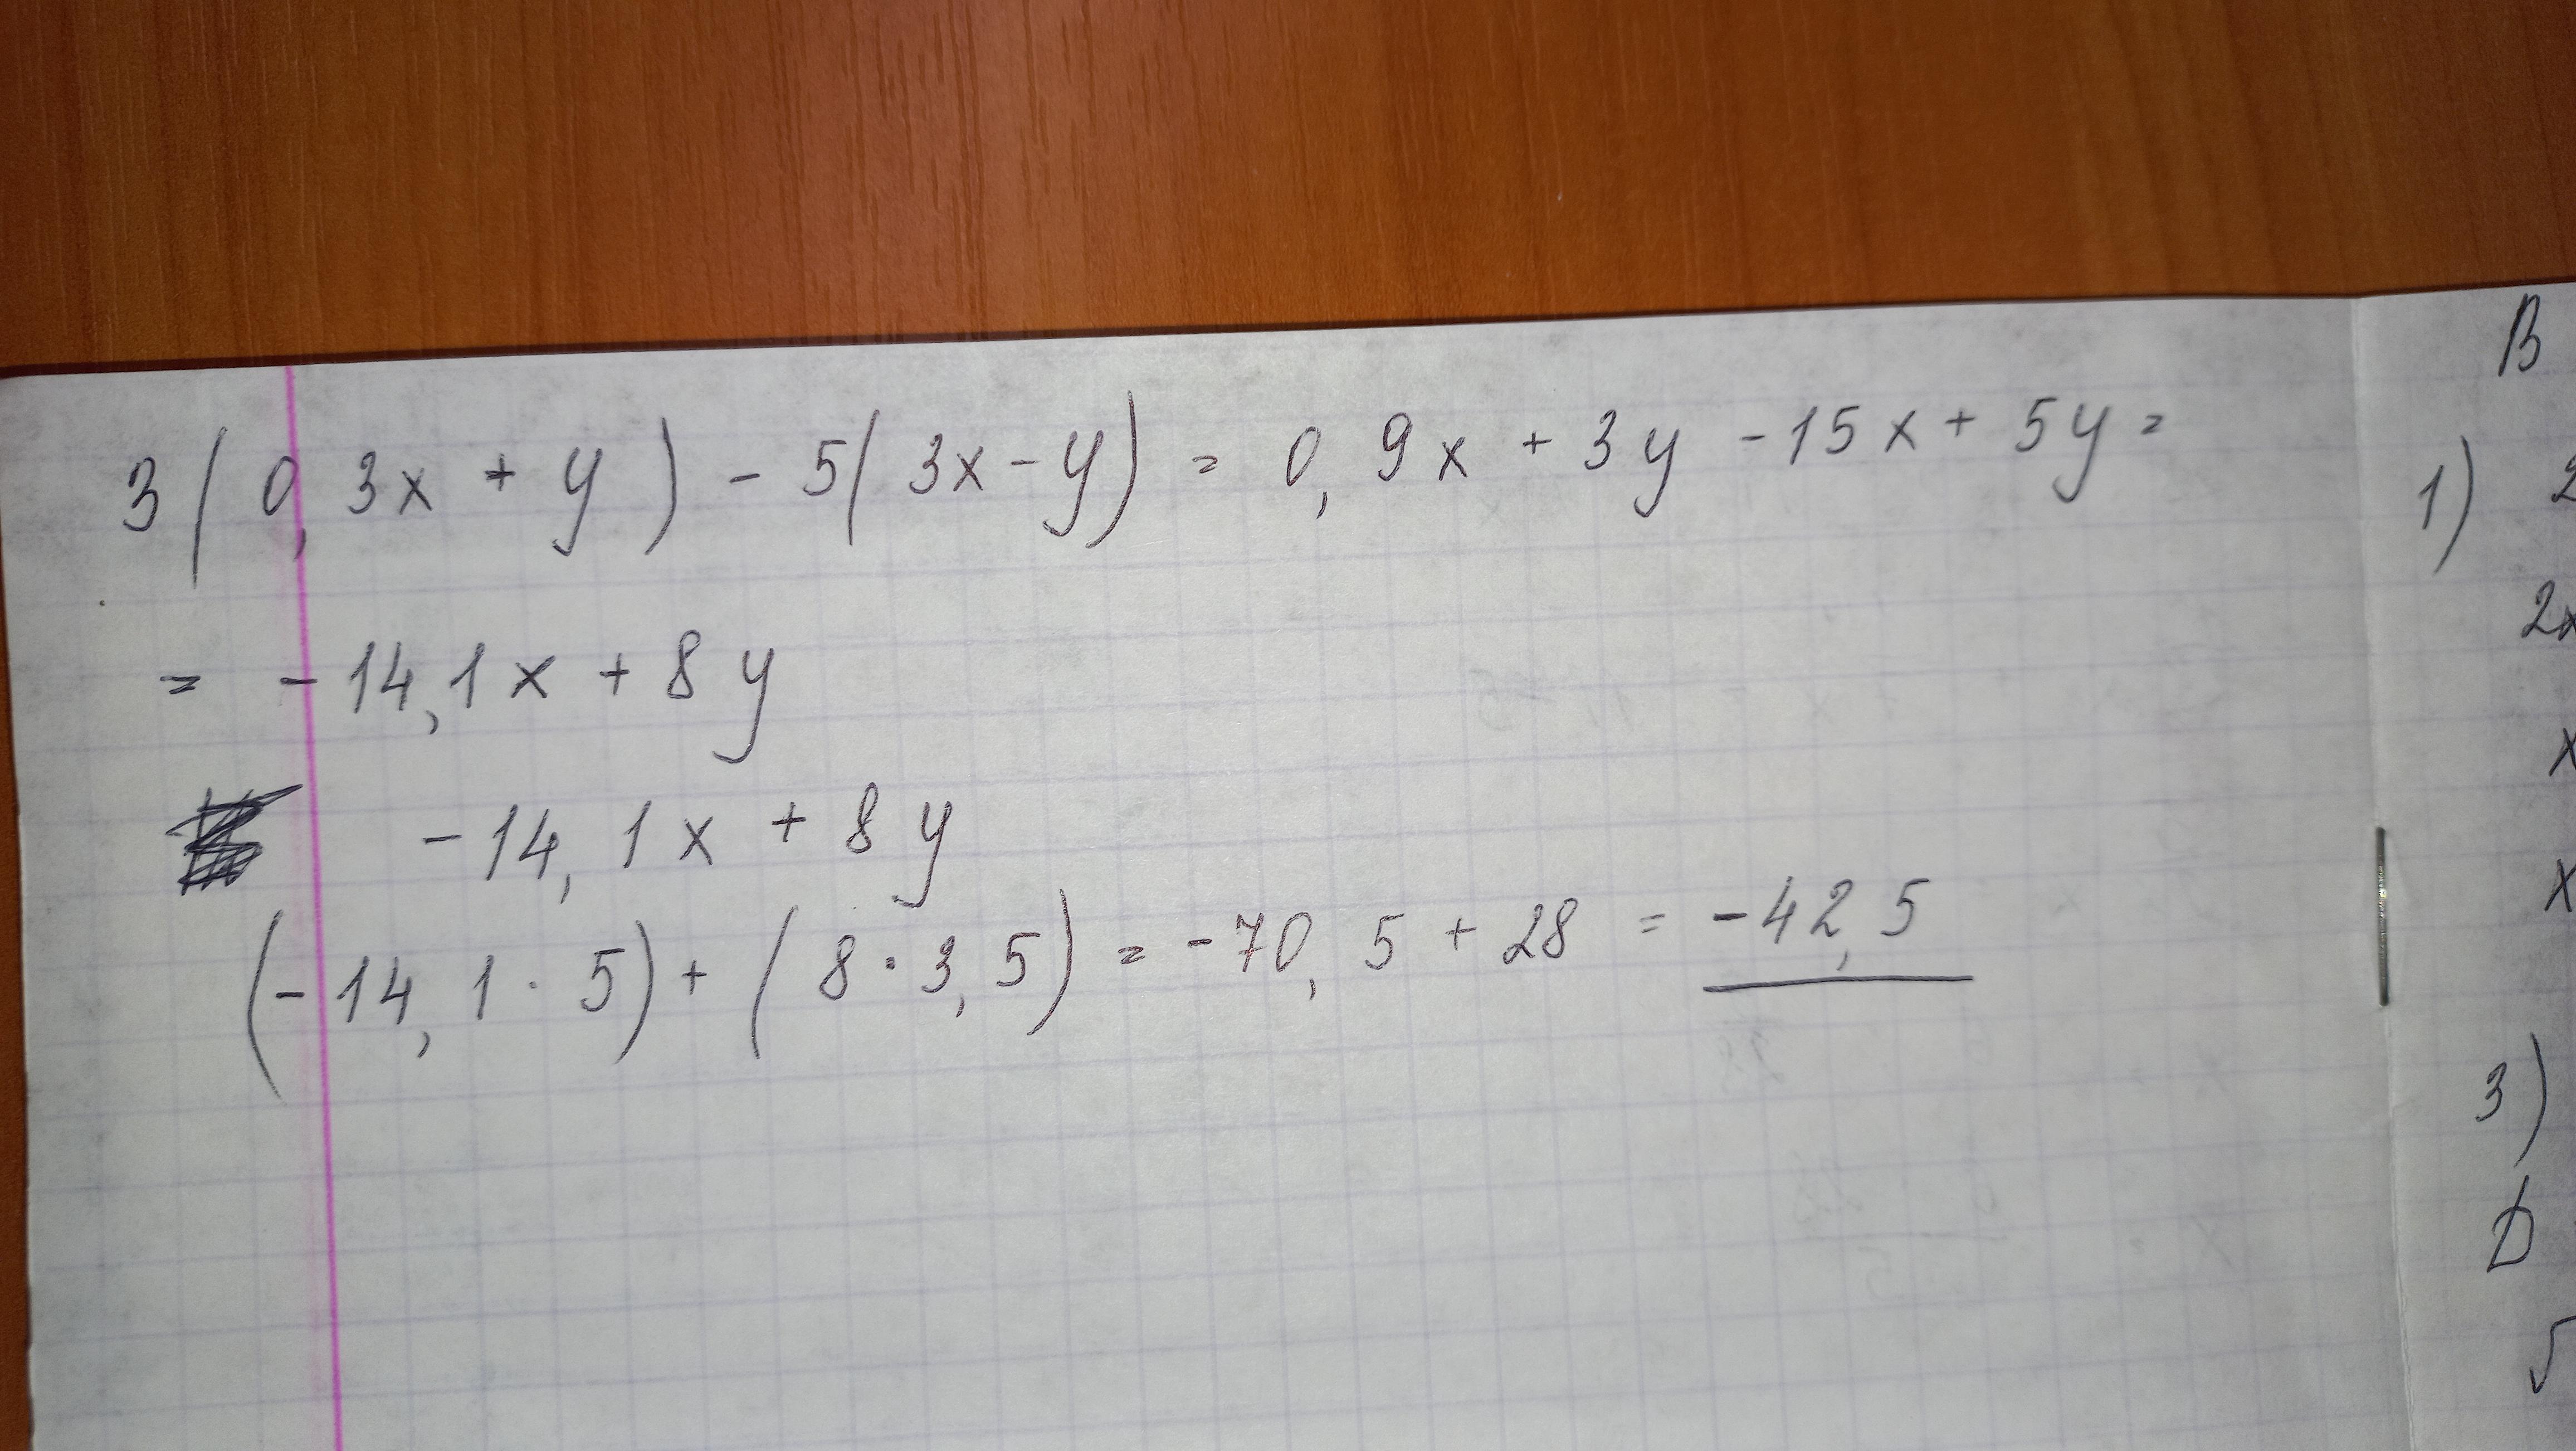 3(0,3x + y) - 5(3x - y) = 0,9x + 3y - 15x + 5y =
= - 14,1x + 8y
- 14,1x + 8y
(- 14,1 · 5) + (8 · 3,5) = - 70,5 + 28 = - 42,5
В
1) 2
2x
x
x
3)
D